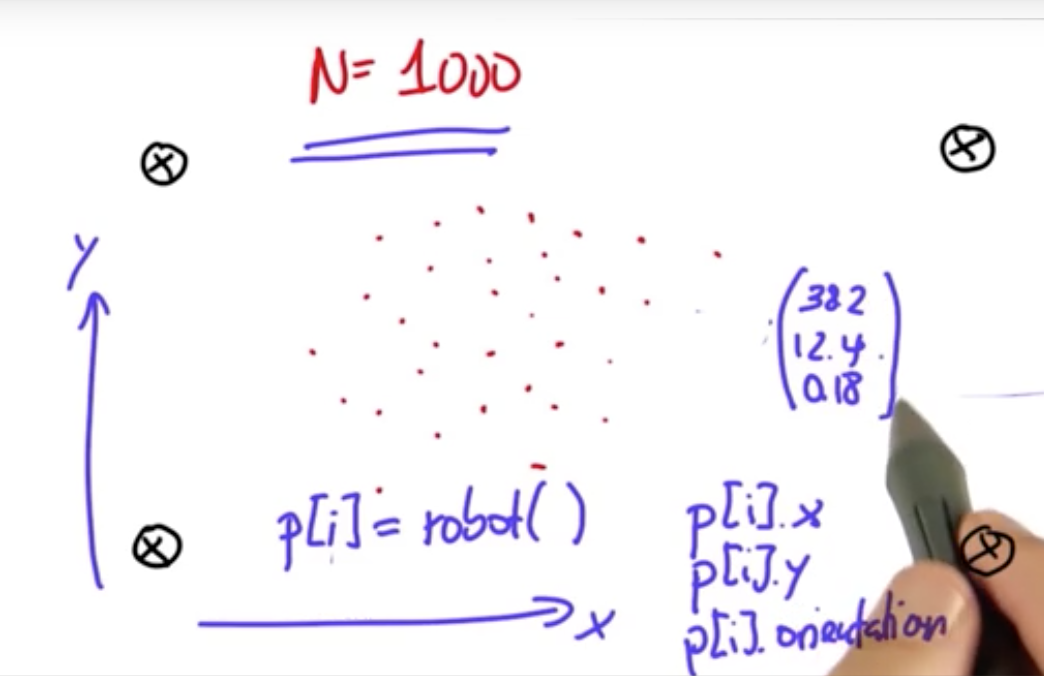 N= 1000
y
382
12.4
0.18
p[i]= robot()
p[i].x
p[i].y
x
p[i].orientation